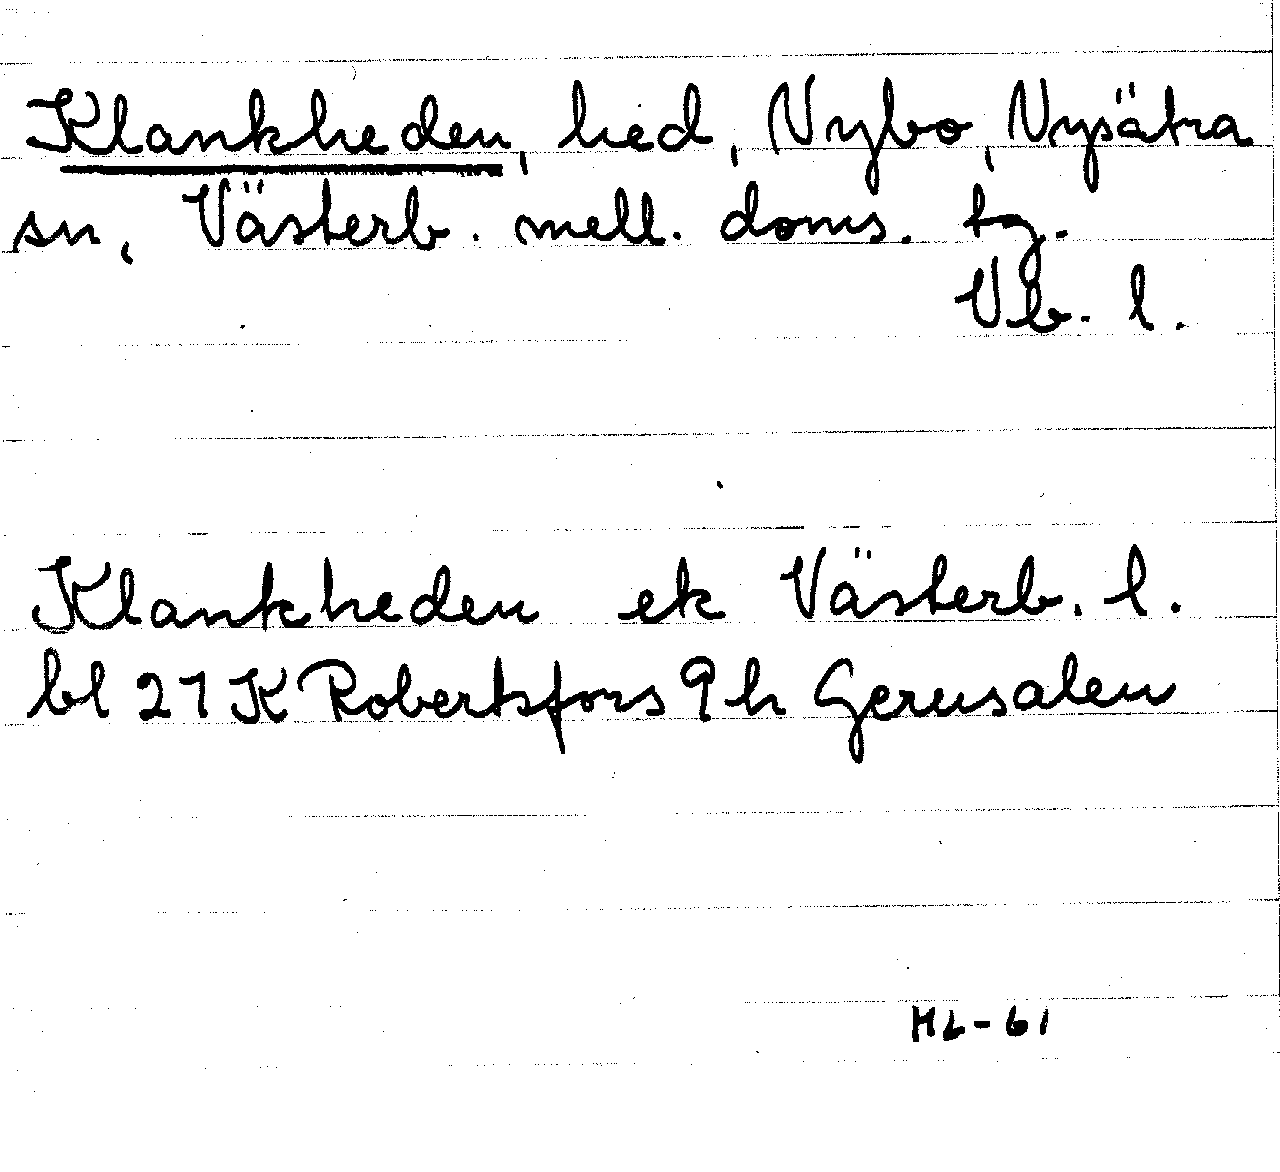 Klankheden, hed, Nybo, Nysätra
sn, Västerb. mell. doms. tg.
Vb. l.
Klankheden ek Västerb. l.
bl 21 K Robertsfors 9 h Gerusalen
HL-61